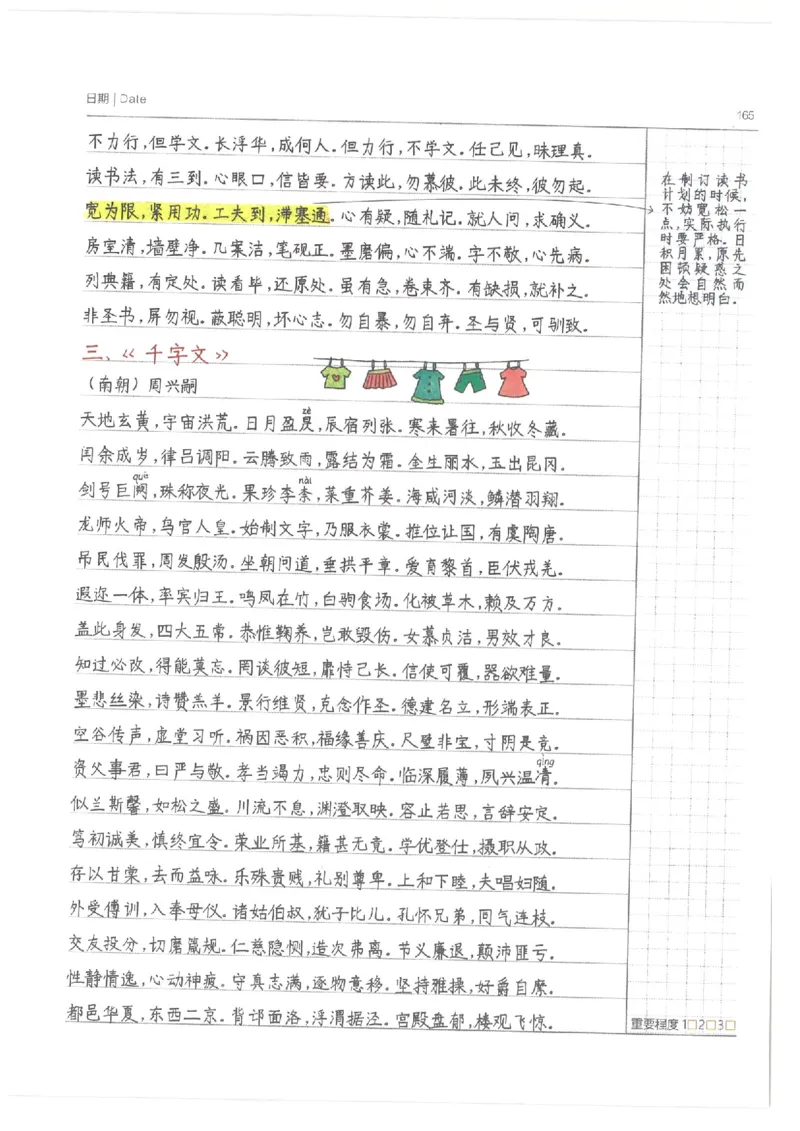 日期 | Date
165
不力行,但学文.长浮华,成何人.但力行,不学文.任己见,昧理真.
读书法,有三到.心眼口,信皆要.方读此,勿慕彼.此未终,彼勿起.
宽为限,紧用功.工夫到,滞塞通.心有疑,随札记.就人问,求确义.
房室清,墙壁净.几案洁,笔砚正.墨磨偏,心不端.字不敬,心先病.
列典籍,有定处.读看毕,还原处.虽有急,卷束齐.有缺损,就补之.
非圣书,屏勿视.蔽聪明,坏心志.勿自暴,勿自弃.圣与贤,可驯致.
在制订读书
计划的时候,
不妨宽松一
点,实际执行
时要严格.日
积月累,原先
困顿疑惑之
处会自然而
然地想明白.
三、《千字文》
(南朝)周兴嗣
zè
天地玄黄,宇宙洪荒.日月盈昃,辰宿列张.寒来暑往,秋收冬藏.
闰余成岁,律吕调阳.云腾致雨,露结为霜.金生丽水,玉出昆冈.
què nài
剑号巨阙,珠称夜光.果珍李柰,菜重芥姜.海咸河淡,鳞潜羽翔.
龙师火帝,鸟官人皇.始制文字,乃服衣裳.推位让国,有虞陶唐.
吊民伐罪,周发殷汤.坐朝问道,垂拱平章.爱育黎首,臣伏戎羌.
遐迩一体,率宾归王.鸣凤在竹,白驹食场.化被草木,赖及万方.
盖此身发,四大五常.恭惟鞠养,岂敢毁伤.女慕贞洁,男效才良.
知过必改,得能莫忘.罔谈彼短,靡恃己长.信使可覆,器欲难量.
墨悲丝染,诗赞羔羊.景行维贤,克念作圣.德建名立,形端表正.
空谷传声,虚堂习听.祸因恶积,福缘善庆.尺璧非宝,寸阴是竞.
qìng
资父事君,曰严与敬.孝当竭力,忠则尽命.临深履薄,夙兴温凊.
似兰斯馨,如松之盛.川流不息,渊澄取映.容止若思,言辞安定.
笃初诚美,慎终宜令.荣业所基,籍甚无竟.学优登仕,摄职从政.
存以甘棠,去而益咏.乐殊贵贱,礼别尊卑.上和下睦,夫唱妇随.
外受傅训,入奉母仪.诸姑伯叔,犹子比儿.孔怀兄弟,同气连枝.
交友投分,切磨箴规.仁慈隐恻,造次弗离.节义廉退,颠沛匪亏.
性静情逸,心动神疲.守真志满,逐物意移.坚持雅操,好爵自縻.
都邑华夏,东西二京.背邙面洛,浮渭据泾.宫殿盘郁,楼观飞惊.
重要程度 1□2□3□